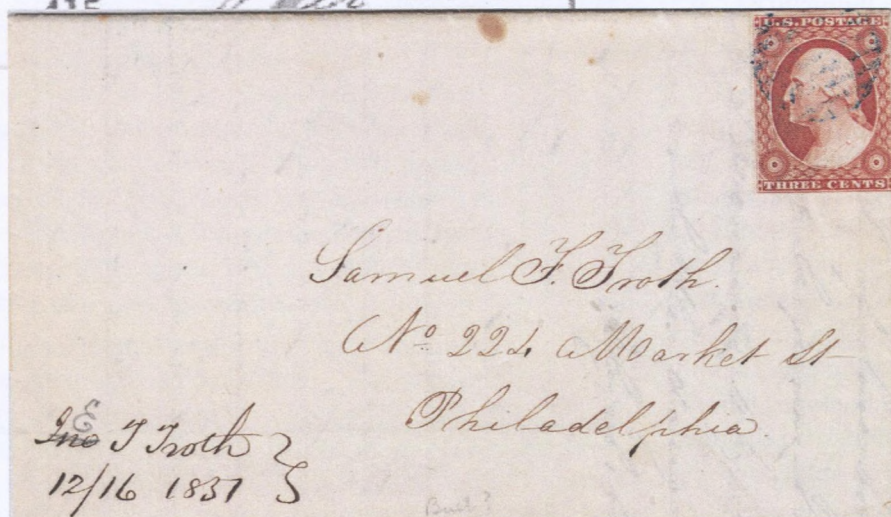 U.S. POSTAGE
THREE CENTS
Samuel F. Troth.
No 224 Market St
Philadelphia.
E
Jno T Troth
12/16 1837